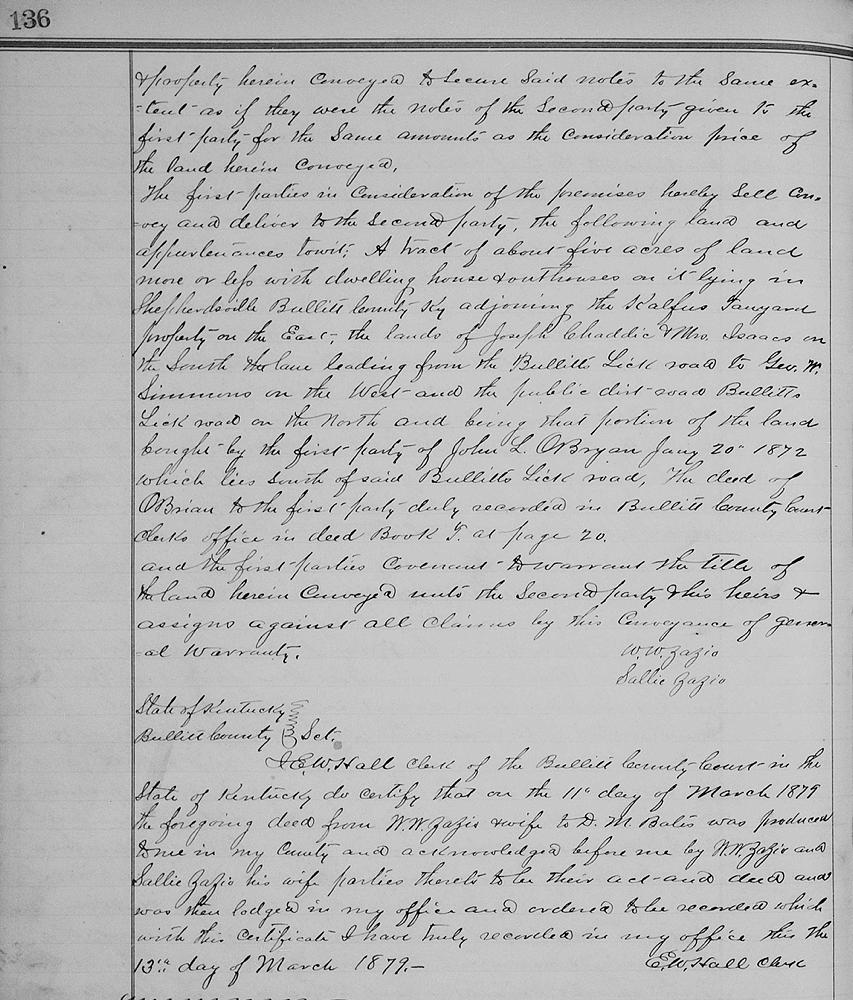 136
& property herein Conveyed to secure Said notes to the Same ex=
=tent as if they were the notes of the Second party given to the
first party for the Same amounts as the Consideration price of
the land herein Conveyed.
The first parties in Consideration of the premises hereby Sell Con=
=vey and deliver to the Second party, the following land and
appurtenances towit; A tract of about five acres of land
more or less with dwelling house & outhouses on it lying in
Shepherdsville Bullitt County Ky adjoining the Kalfus Tanyard
property on the East, the lands of Joseph Chaddic & Mrs. Isaacs on
the South the lane leading from the Bullitts Lick road to Geo. W.
Simmons on the West and the public dirt road Bullitts
Lick road on the North and being that portion of the land
bought by the first party of John L. OBryan Jany 20" 1872
which lies South of said Bullitts Lick road, The deed of
OBrian to the first party duly recorded in Bullitt County Court
Clerks office in deed Book T. at page 20.
and the first parties Covenant to warrant the title of
the land herein Conveyed unto the Second party & his heirs &
assigns against all Claims by this Conveyance of gener=
=al Warranty.
W.W. Zazio
Sallie Zazio
State of Kentucky
Bullitt County Sct.
I E.W. Hall Clerk of the Bullitt County Court in the
State of Kentucky do certify that on the 11" day of March 1879
the foregoing deed from W.W. Zazio & wife to D. M. Bates was produced
to me in my County and acknowledged before me by W.W. Zazio and
Sallie Zazio his wife parties thereto to be their act and deed and
was then lodged in my office and ordered to be recorded which
with this Certificate I have truly recorded in my office this the
13th day of March 1879.—
E.W. Hall Clerk